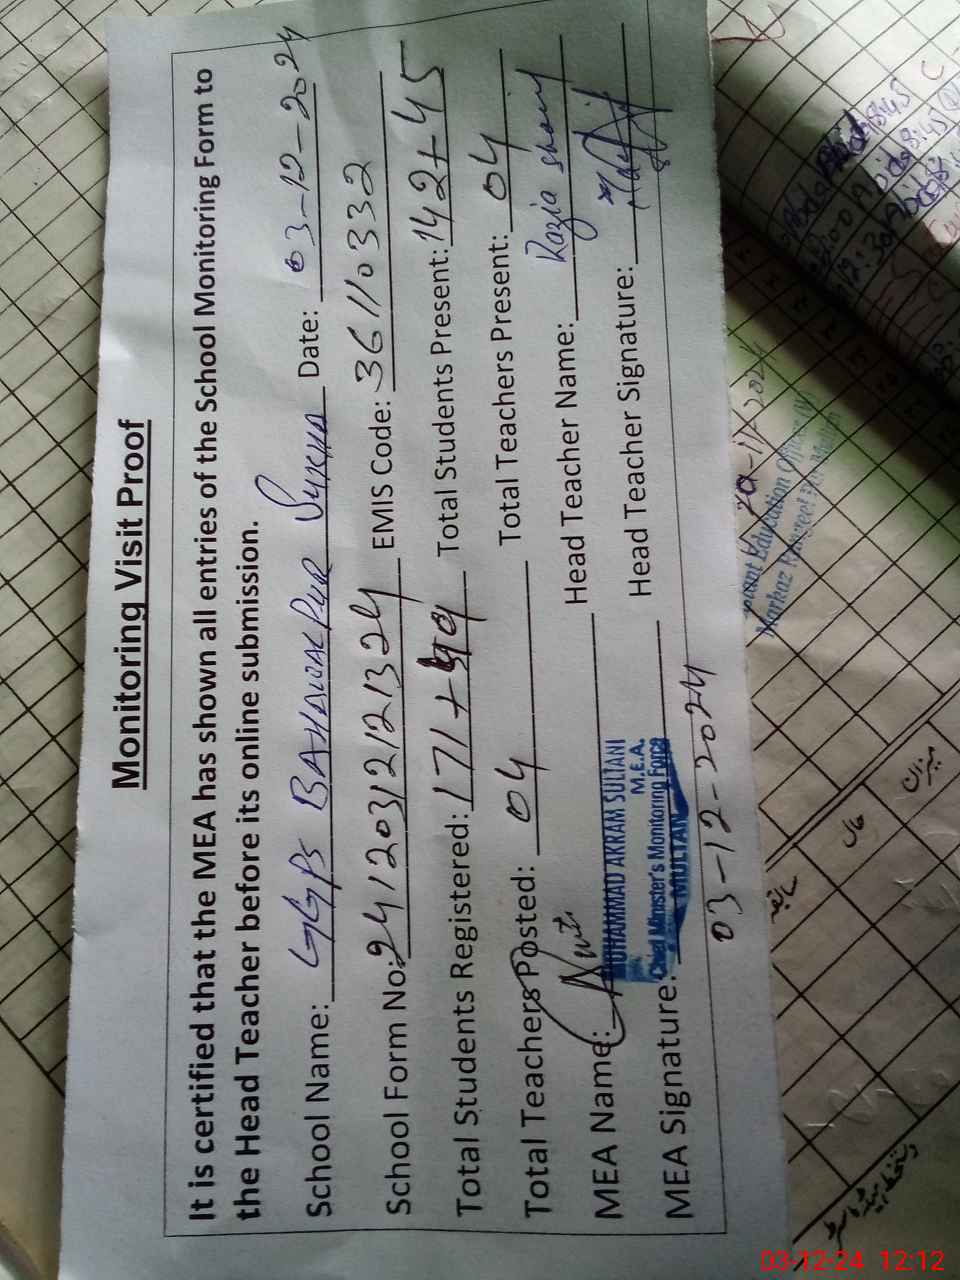 Monitoring Visit Proof
It is certified that the MEA has shown all entries of the School Monitoring Form to
the Head Teacher before its online submission.
School Name: GGPS BAHAWALPUR SUKHA Date: 03-12-2024
School Form No: 24120312121324 EMIS Code: 36110332
Total Students Registered: 171+49 Total Students Present: 142+45
Total Teachers Posted: 04 Total Teachers Present: 04
MEA Name: Head Teacher Name: Razia
MUHAMMAD AKRAM SULTANI
M.E.A.
Chief Minister's Monitoring Force
MULTAN
MEA Signature: Head Teacher Signature:
03-12-2024
-11-2024
Education Officer (W)
Markaz
میزان
حال
سابقہ
دستخط ہیڈ ماسٹر
03-12-24 12:12